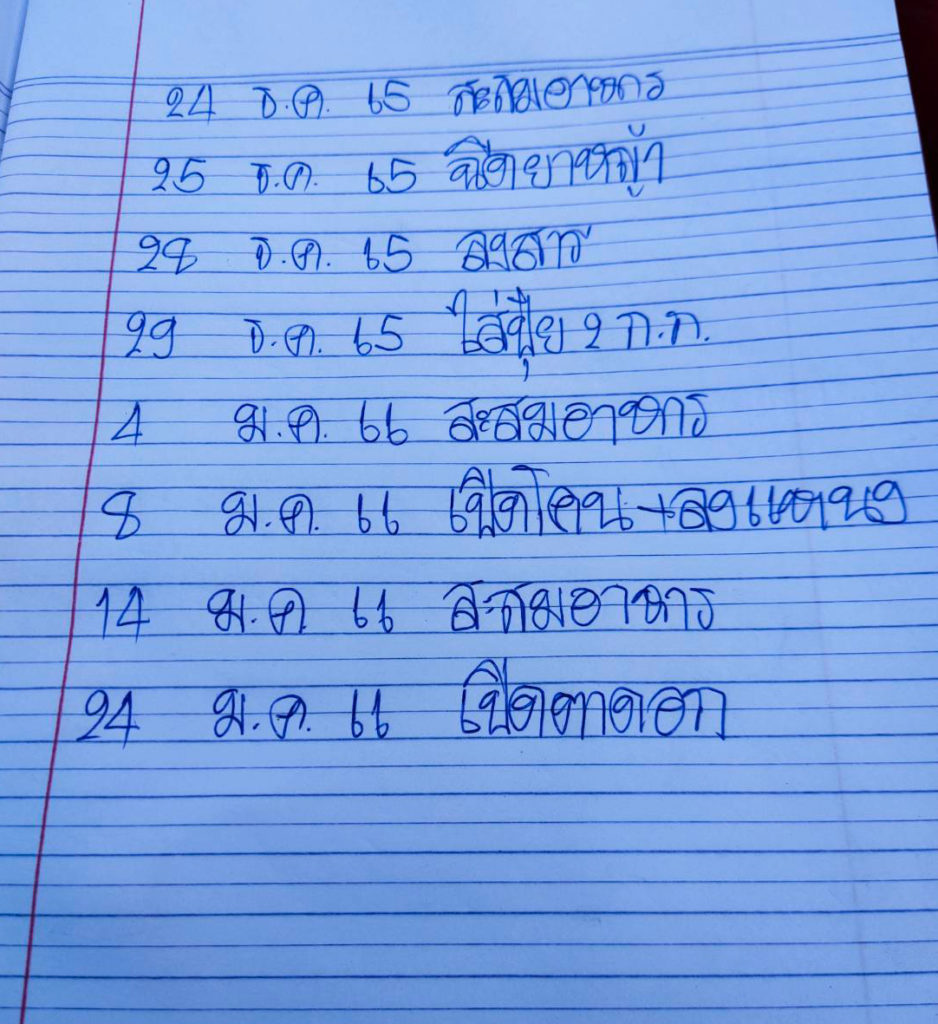 24 ธ.ค. 65 สะสมอาหาร
25 ธ.ค. 65 ฉีดยาหญ้า
28 ธ.ค. 65 ลงสาร
29 ธ.ค. 65 ใส่ปุ๋ย 2 ก.ก.
4 ม.ค. 66 สะสมอาหาร
8 ม.ค. 66 เปิดโคน+ลงแคนน
14 ม.ค 66 สะสมอาหาร
24 ม.ค. 66 เปิดตาดอก